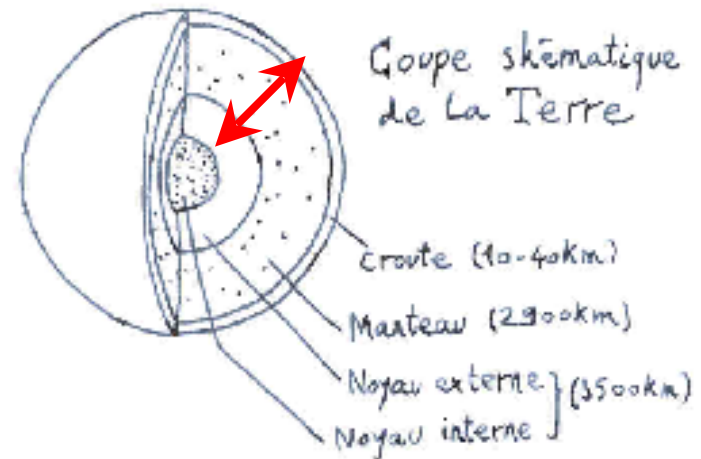 Coupe skématique
de La Terre
croute (10-40km)
Manteau (2900km)
Noyau externe
Noyau interne
(3500km)